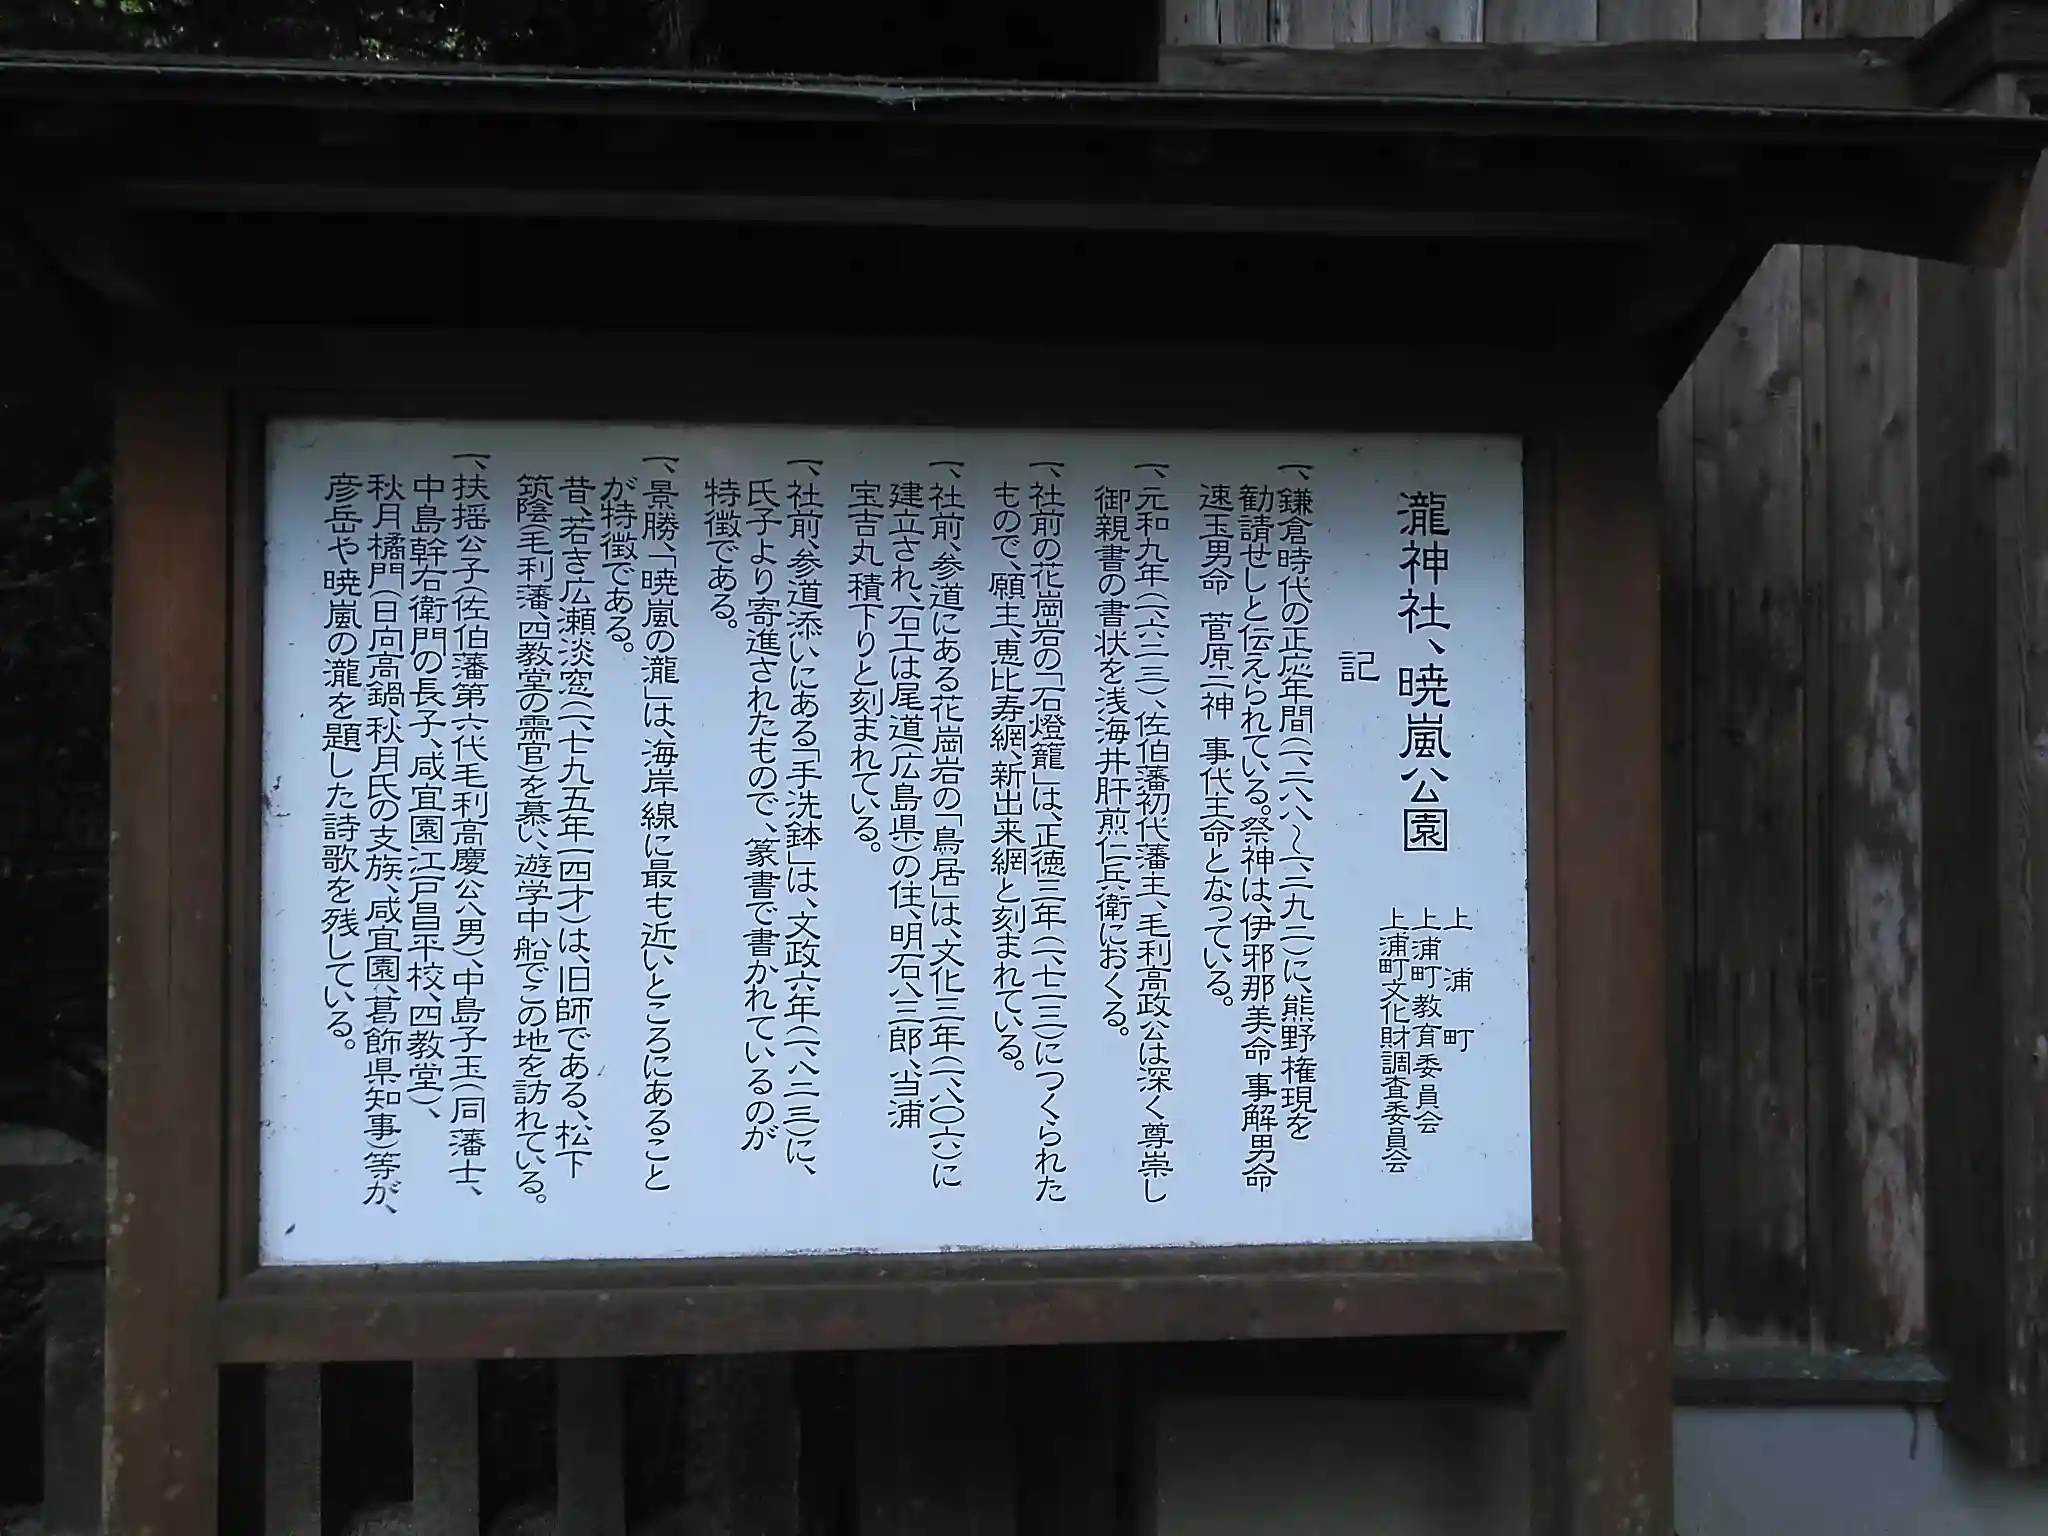 瀧神社、暁嵐公園
上浦町
上浦町教育委員会
上浦町文化財調査委員会
記
一、鎌倉時代の正応年間(一、二八八〜一、二九二)に、熊野権現を
勧請せしと伝えられている。祭神は、伊邪那美命 事解男命
速玉男命 菅原二神 事代王命となっている。
一、元和九年(一、六二三)、佐伯藩初代藩主、毛利高政公は深く尊崇し
御親書の書状を浅海井肝煎仁兵衛におくる。
一、社前の花崗岩の「石燈籠」は、正徳三年(一、七一三)につくられた
もので、願主、恵比寿網、新出来網と刻まれている。
一、社前、参道にある花崗岩の「鳥居」は、文化三年(一、八〇六)に
建立され、石工は尾道(広島県)の住、明石、八三郎、当浦
宝吉丸 積下りと刻まれている。
一、社前、参道添いにある「手洗鉢」は、文政六年(一、八二三)に、
氏子より寄進されたもので、篆書で書かれているのが
特徴である。
一、景勝、「暁嵐の瀧」は、海岸線に最も近いところにあること
が特徴である。
昔、若き広瀬淡窓(一、七九五年一四才)は、旧師である、松下
筑陰(毛利藩、四教堂の霊官)を慕い、遊学中船でこの地を訪れている。
一、扶揺公子(佐伯藩第六代毛利高慶公八男)、中島子玉(同藩士、
中島幹右衛門の長子、咸宜園江戸昌平校、四教堂)、
秋月橘門(日向高鍋、秋月氏の支族、咸宜園、葛飾県知事)等が、
彦岳や暁嵐の瀧を題した詩歌を残している。